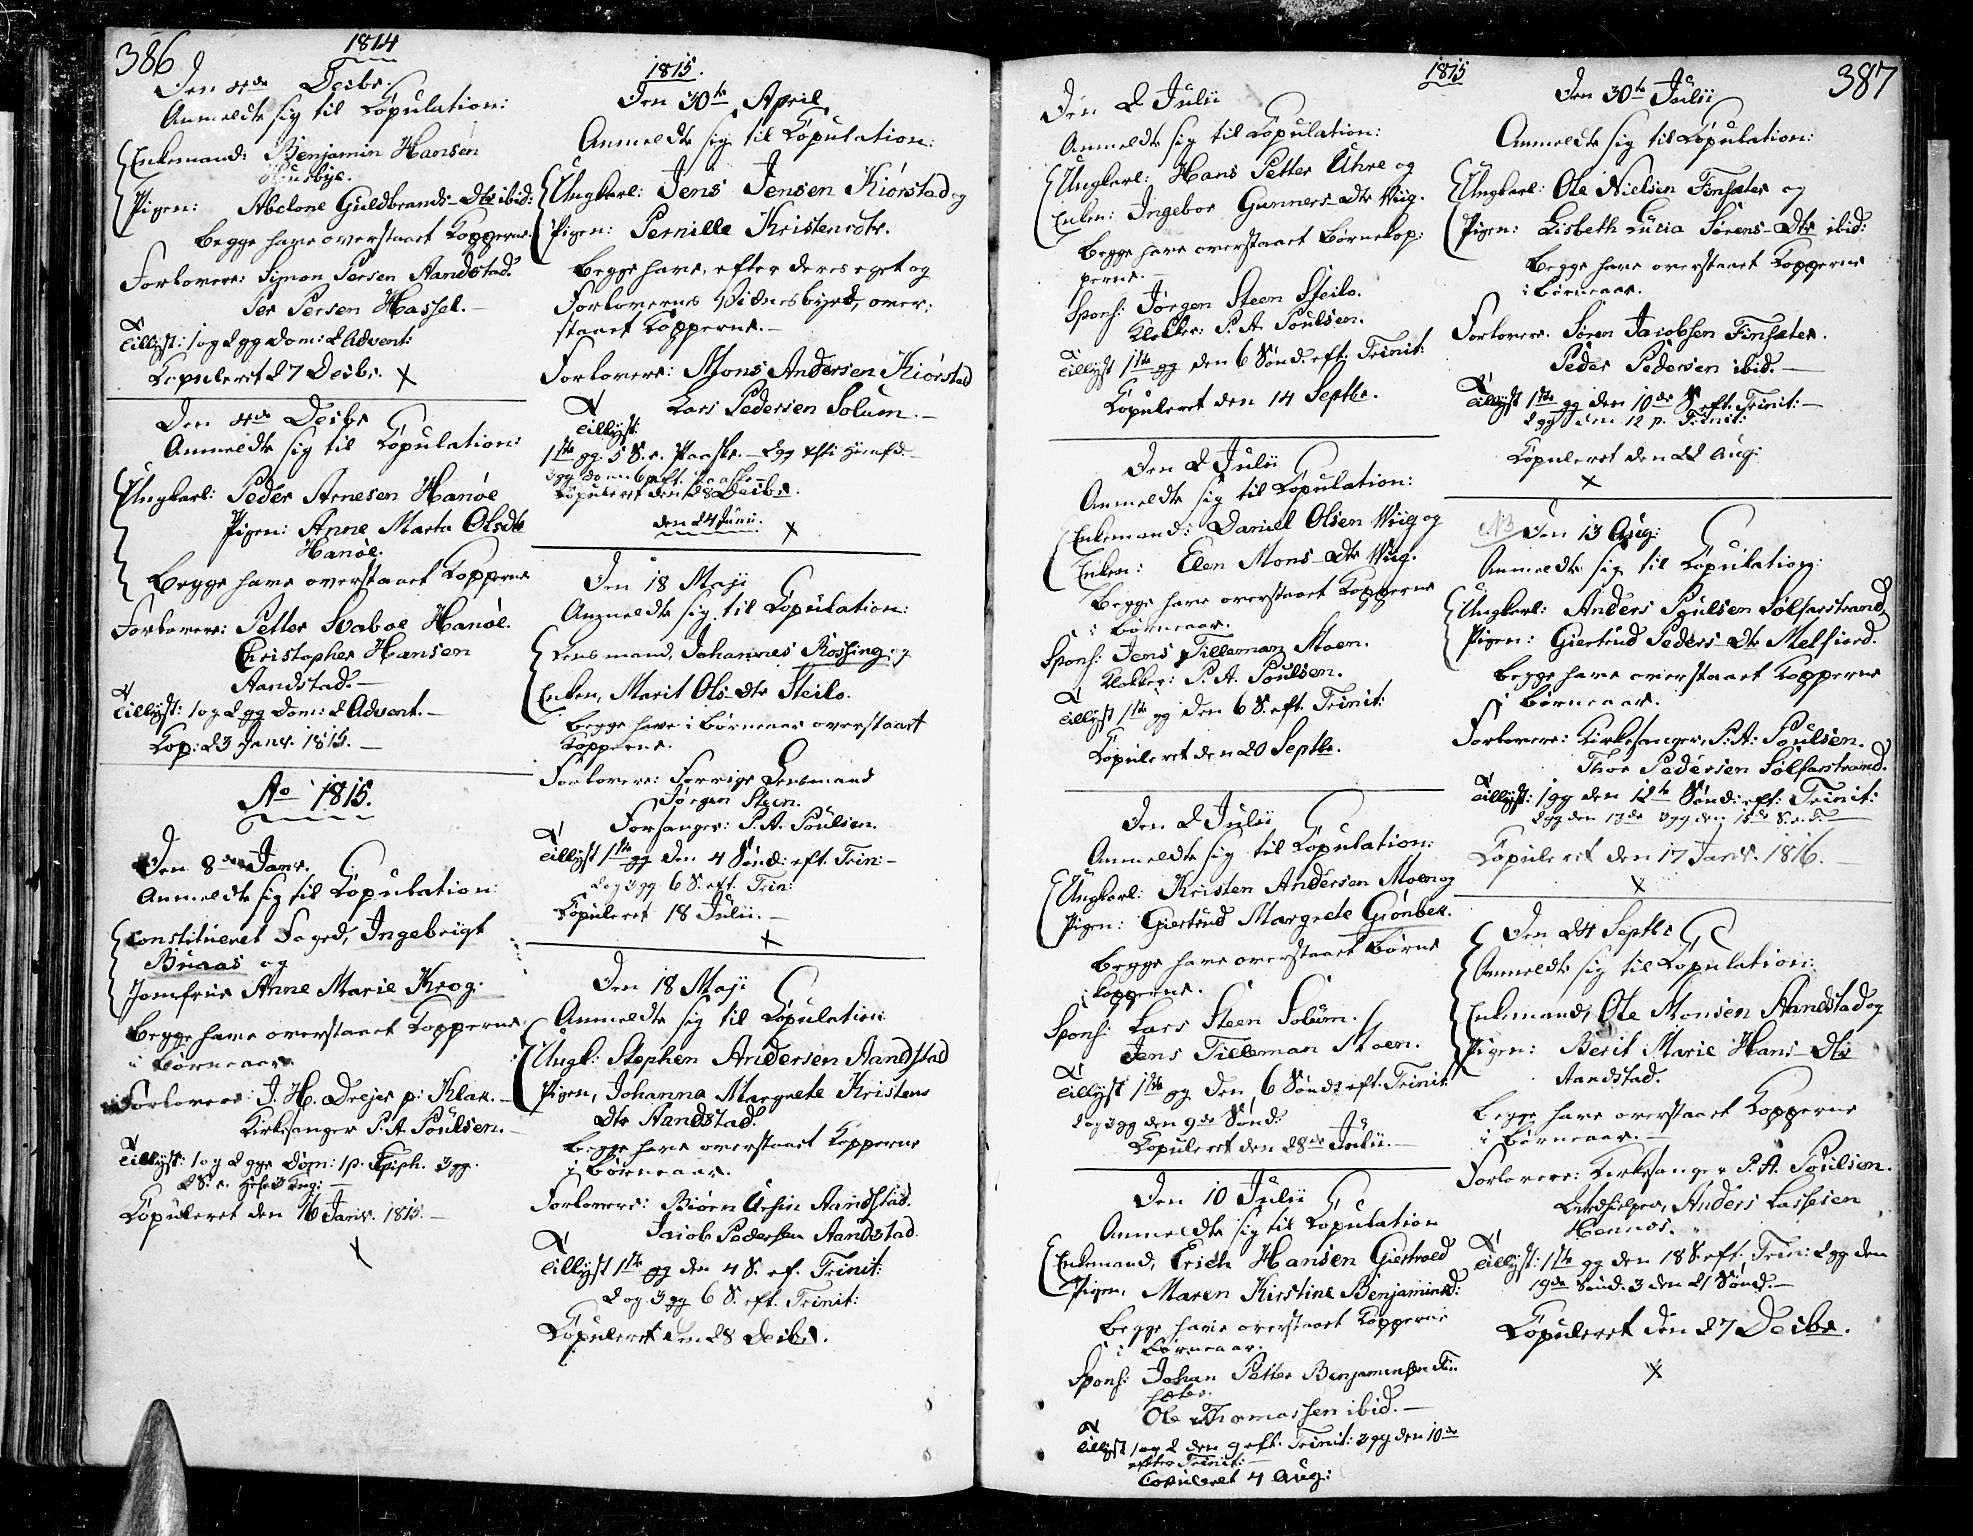 386
1814
Den 4de Decbr.
Anmeldte sig til Copulation:
Enkemand: Benjamin Hansen
Huusbye.
Pigen: Abelone Guldbrands-Dtr ibid:
begge have overstaaet Kopperne.
Forlovere: Simon Persen Aandstad.
Per Persen Hassel. -
Tillyst: 1 og 2 gg Dom: 2 Advent:
Copuleret 27 Decbr. X
Den 4de Decbr
Anmeldte sig til Copulation:
Ungkarl: Peder Arnesen Hanøe
Pigen: Anne Marta Olsdtr
Hanøe.
Begge have overstaaet Kopperne
Forlovere: Petter Svaboe Hanøe.
Christopher Hansen
Aandstad. -
Tillyst: 1 og 2 gg Dom: 2 Advent. -
Kop: 23 Janr. 1815. -
Ao 1815.
Den 8de Janr.
Anmeldte sig til Copulation:
Constitueret Foged, Ingebrigt
Bruaas og
Jomfrue Anne Marie Krog.
begge have overstaaet Kopperne
i børneaar
Forlovere J. H. Drejer p: Klar. -
Kirkesanger P. A. Poulsen. -
Tillyst: 1 og 2 gge Dom: 1 p. Epiph. 3 gg.
2 S. e.
Copuleret den 16 Janr. 1815. -
X
1815.
Den 30te April
Anmeldte sig til Copulation:
Ungkarl: Jens Jensen Kiørstad og
Pigen: Pernille Kristensdtr.
begge have, efter deres eget og
Forlovernes Vidnesbyrd, over:
staaet Kopperne. -
Forlovere: Mons Andersen Kiørstad
Lars Pedersen Solum. -
Tillyst:
1ste gg. 5 S. e. Paaske. - 2 gg Chti Himfd. -
3 gg Dom. 6 eft. Paaske -
Copuleret den 28 Decbr.
den 24 Junii. X
Den 18 Maji
Anmeldte sig til Copulation:
Lensmand, Johannes Rossing og
Enken, Marit Ols-Dtr Steilo.
begge have i børneaar overstaaet
Kopperne.
Forlovere: Forrige Lensmand
Jørgen Steen.
Forsanger: P. A. Poulsen.
Tillyst 1ste gg den 4 Sønd: eft. Trin: -
2 og 3 gg 6 S. eft. Trin:
Copuleret 18 Julii. -
X
Den 18 Maji
Anmeldte sig til Copulation
Ungk: Stephen Andersen Aandstad
Pigen, Johanna Margrete Kristens
Dtr Aandstad.
begge have overstaaet Kopperne
i børneaar.
Forlovere: Biørn Ursin Aandstad.
Jacob Pedersen Aandstad.
Tillyst 1ste gg den 4 S. ef. Trinit:
2 og 3 gg 6 S. eft. Trinit:
Copuleret den 28 Decbr.
1815
387
Den 2 Julii
Anmeldte sig til Copulation:
Ungkarl: Hans Petter Uhre og
Enken: Ingebor Gunners-Dtr Wiig.
begge have overstaaet børnekop:
perne. -
Spons: Jørgen Steen Steilo.
Klokker: P. A. Poulsen.
Tillyst 1ste gg den 6 Sønd. eft. Trinit:
Copuleret den 14 Septbr.
Den 2 Julii
Anmeldte sig til Copulation:
Enkemand: Daniel Olsen Wiig og
Enken: Elen Mons-Dtr Wiig.
begge have overstaaet Kopperne
i børneaar.
Spons: Jens Tilleman Moen.
Klokker: P. A. Poulsen.
Tillyst 1ste gg den 6 S. eft. Trinit:
Copuleret den 20 Septbr.
Den 2 Julii
Anmeldte sig til Copulation:
Ungkarl: Kristen Andersen Moen og
Pigen: Giertrud Margrete Grønbek.
begge have overstaaet børne
kopperne.
Spons: Lars Steen Solum.
Jens Tilleman Moen.
Tillyst 1ste gg den 6 Sønd: eft. Trinit:
2 og 3 gg den 9de Sønd:
Copuleret den 28de Julii. -
Den 10 Julii
Anmeldte sig til Copulation
Enkemand, Erich Hansen Giestvold
Pigen, Maren Kirstine Benjaminsd:
begge have overstaaet Kopperne
i børneaar.
Spons: Johan Petter Benjaminsen Fin:
sæter.
Ole Thomassen ibid. -
Tillyst 1 og 2 den 9 eft. Trinit: 3 gg den 10de
efter Trinit: -
Copuleret 4 Aug:
Den 30te Julii
Anmeldte sig til Copulation:
Ungkarl: Ole Nielsen Finsæter og
Pigen: Lisbeth Lucia Sørens-Dtr ibid:
begge have overstaaet Kopperne
i børneaar.
Forlovere. Søren Jacobsen Finsæter.
Peder Pedersen ibid. -
Tillyst 1ste gg den 10de S. eft. Trinit: -
2 gg den 12 p. Trinit:
Copuleret den 22 Aug:
X
NB Den 13 Aug:
Anmeldte sig til Copulation:
Ungkarl: Anders Poulsen Solfarstrand,
Pigen: Giertrud Peders-Dtr Melfiord.
begge have overstaaet Kopperne
i børneaar.
Forlovere: Kirkesanger, P: A: Poulsen.
Thor Pedersen Solfarstrand.
Tillyst: 1 gg den 12te Sønd: eft: Trinit:
2 gg den 13de 3 gg den 15de S. e. T. -
Copuleret den 17 Janr. 1816. -
X
Den 24 Septbr
Anmeldte sig til Copulation:
Enkemand, Ole Monsen Aandstad og
Pigen: Berit Marie Hans-Dtr
Aandstad.
begge have overstaaet Kopperne
i børneaar. -
Forlovere: Kirkesanger P. A. Poulsen.
Anders Lassesen
Hennes.
Tillyst: 1ste gg den 18 S. eft. Trin: 2 gg den
19de Sønd. 3 den 21 Sønd. -
Copuleret den 27 Decbr.
X